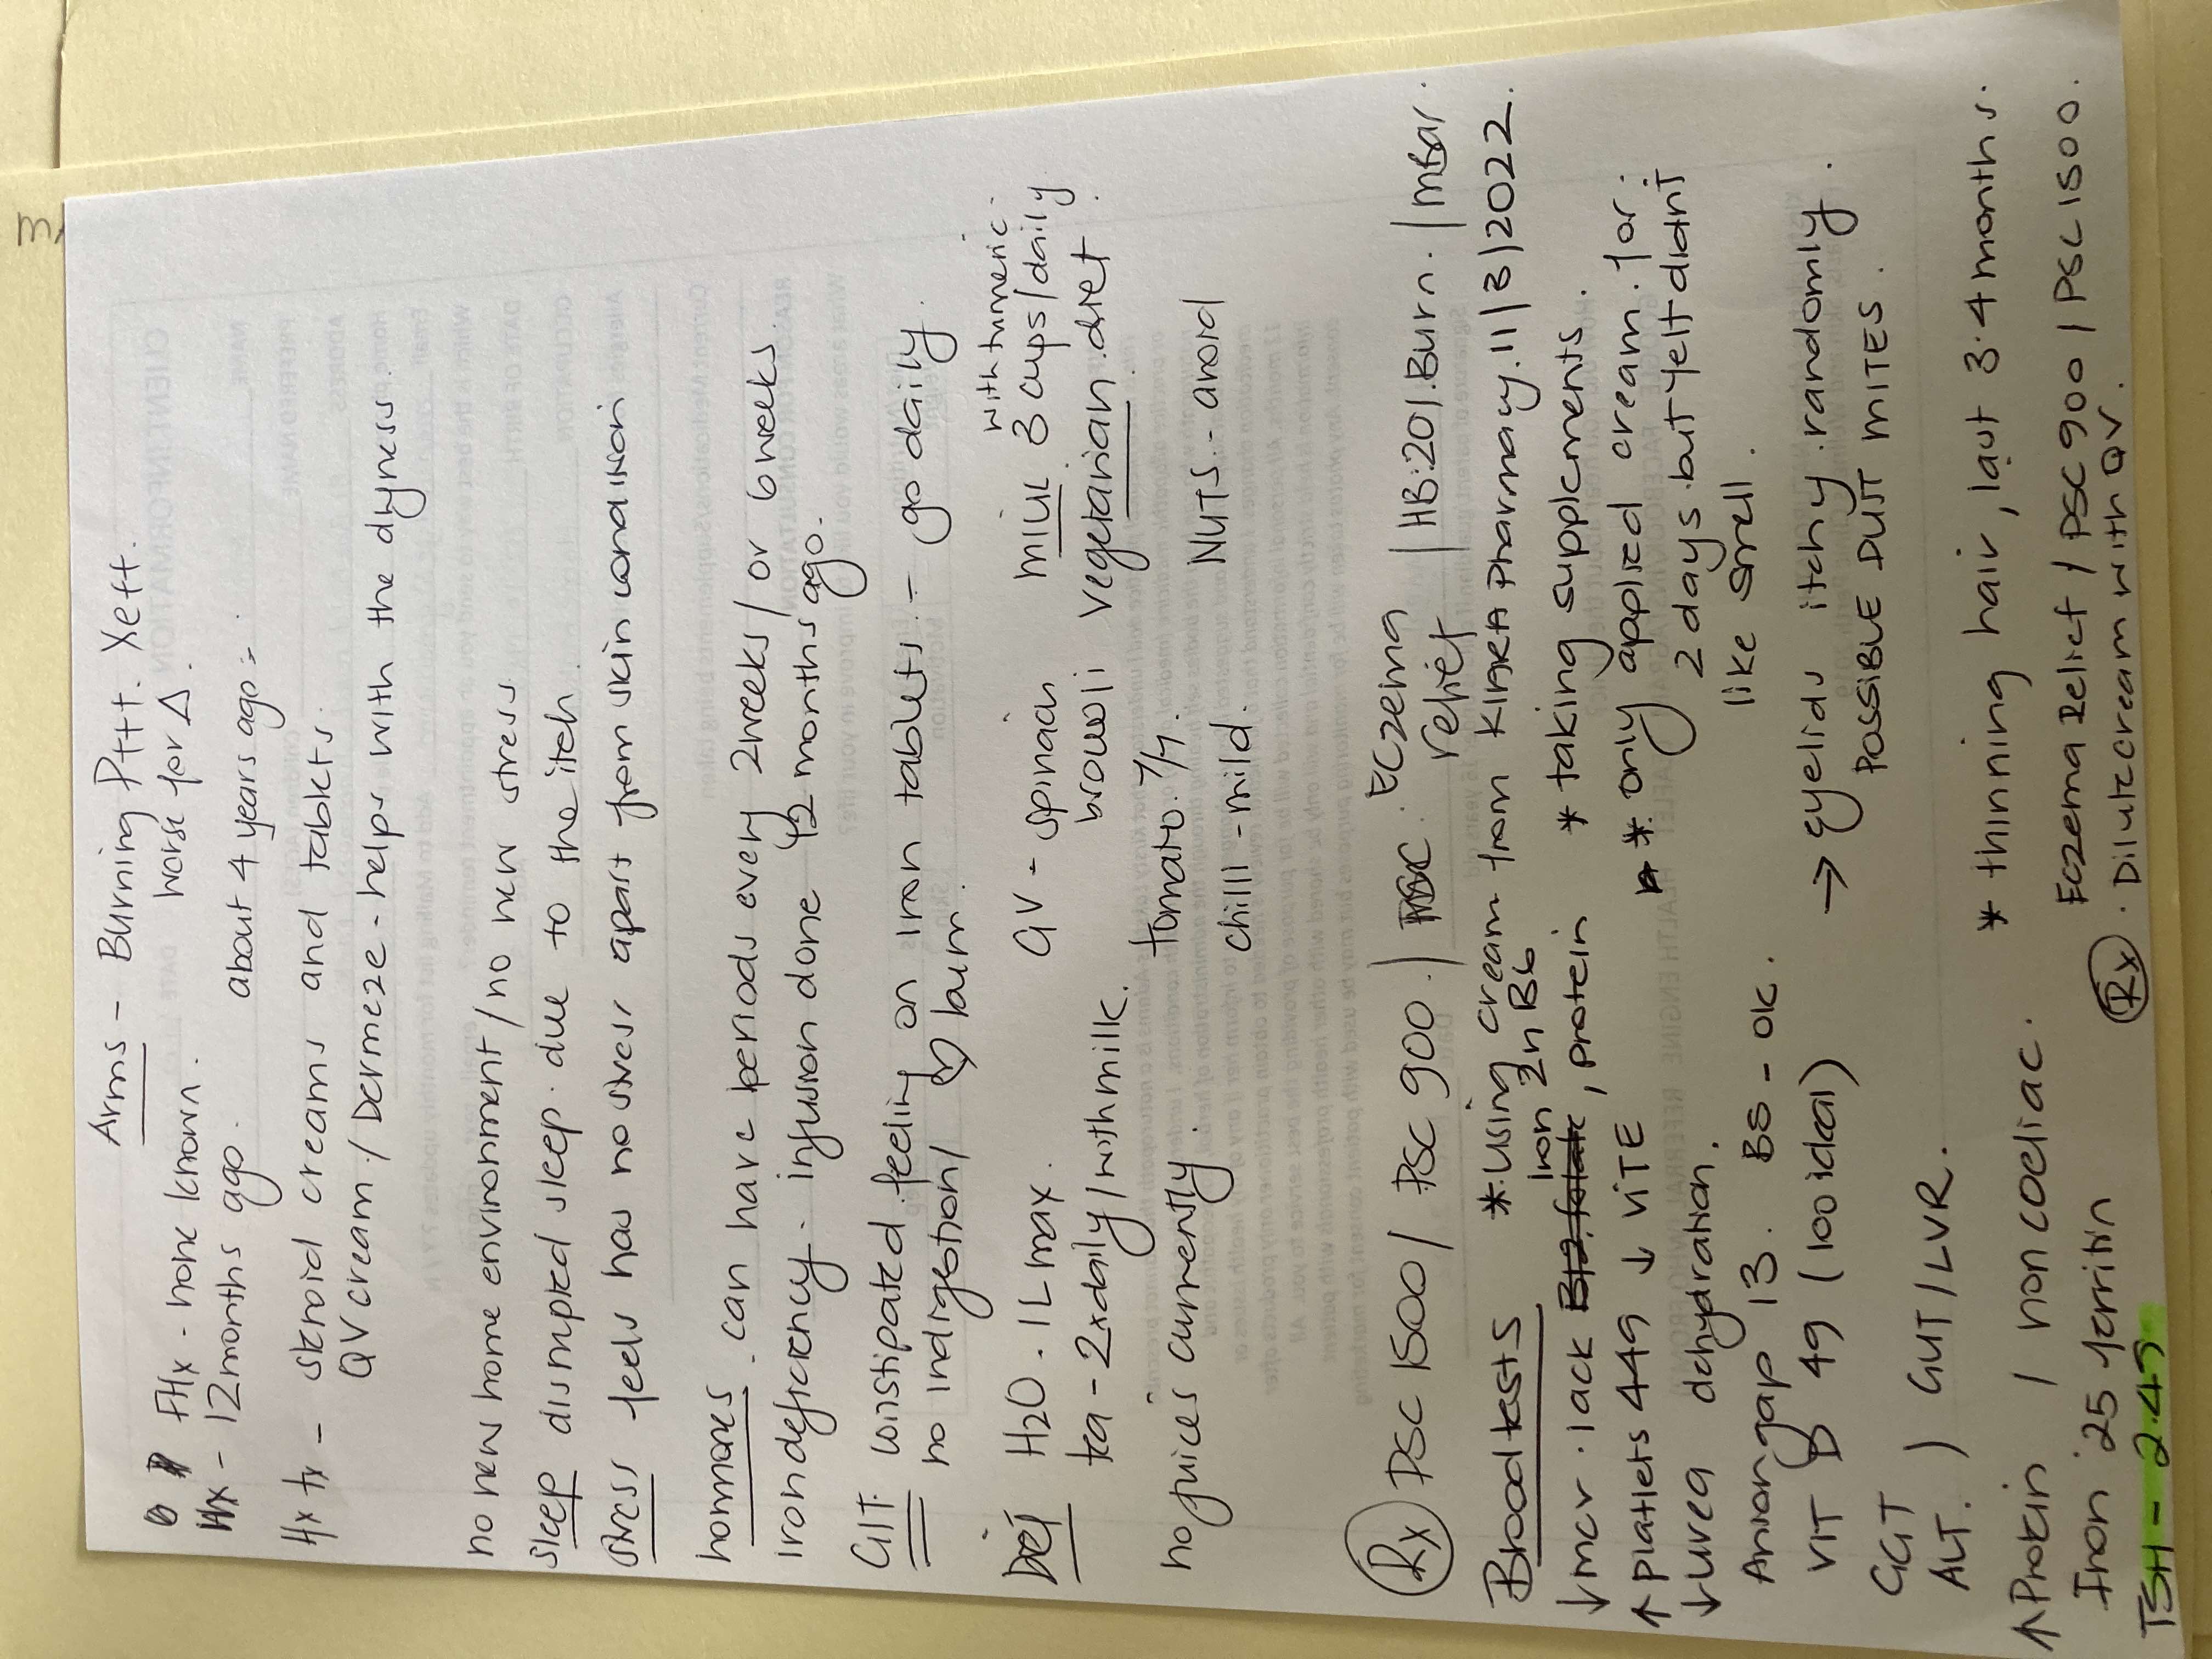 Arms - Burning P+++. Xeft.
FHx - none known. worse for Δ.
Hx - 12 months ago. about 4 years ago =
Hx tx - steroid creams and tablets.
QV cream / Dermeze - helps with the dyness.
no new home environment / no new stress.
sleep disrupted sleep. due to the itch.
stress feels has no stress apart from skin condition
hormones. can have periods every 2 weeks / or 6 weeks.
iron deficiency. infusion done 12 months ago.
GIT. constipated feeling on iron tablets. - go daily
no indigestion / ♡ burn.
Diet H2O. 1L max. GV - spinach milk 3 cups / daily with tumeric.
tea - 2x daily / with milk. brocolli vegetarian. diet.
no juices currently. tomato. 7/7. NUTS. - avoid
chilli - mild.
Rx PSC 1500 / PSC 900. / PSC. Eczema relief / HB: 201. Burn. / mBar.
Blood tests * using cream from KIARA Pharmacy. 11/3/2022.
↓ mcv. lack B12, folate, iron Zn B6, protein * taking supplements.
↑ platlets 449 ↓ VIT E * only applied cream. for.
↓ urea dehydration. 2 days. but felt didnt
Anion gap 13. BS - ok. like smell.
VIT D 49 (100 ideal) → eyelids itchy. randomly.
GGT POSSIBLE DUST MITES.
ALT. ) GUT / LVR.
↑ Protein / non coeliac. * thinning hair, last 3-4 months.
Iron 25 ferritin Eczema Relief / PSC 900 / PSC 1500.
TSH - 2.47 Rx. Dilute cream with QV.